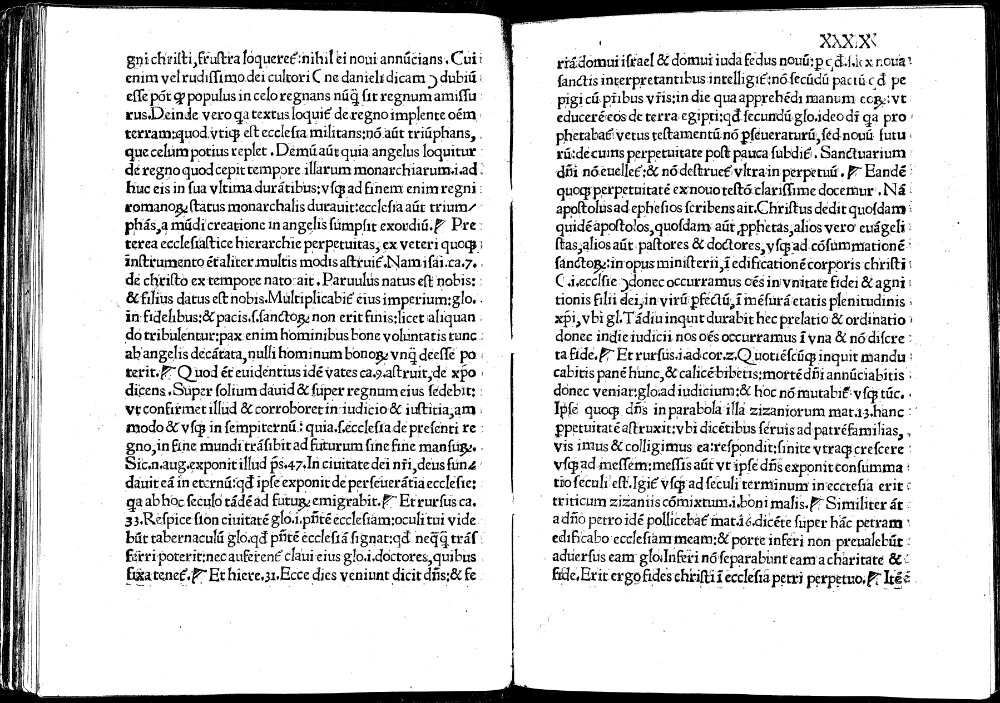 gni christi, frustra loquereẽ: nihil ei noui annũcians. Cui
enim vel rudissimo dei cultori ( ne danieli dicam ) dubiũ
esse põt ꝙ populus in celo regnans nũꝗ̃ sit regnum amissu
rus. Deinde vero ꝗa textus loquiẽ de regno implente oẽm
terram: quod vtiꝙ est ecclesia militans: nõ aũt triũphans,
que celum potius replet. Demũ aũt quia angelus loquitur
de regno quod cepit tempore illarum monarchiarum .i. ad
huc eis in sua vltima durãtibus: vsꝗ ad finem enim regni
romanoꝝ status monarchalis durauit: ecclesia aũt trium⸗
phãs, a mũdi creatione in angelis sumpsit exordiũ. ¶ Pre
terea ecclesiastice hierarchie perpetuitas, ex veteri quoꝗ
instrumento ẽt aliter multis modis astruiẽ. Nam isai. ca. 7.
de christo ex tempore nato ait. Paruulus natus est nobis:
& filius datus est nobis. Multiplicabiẽ eius imperium: glo.
in fidelibus: & pacis .s. sanctoꝝ non erit finis: licet aliquan
do tribulentur: pax enim hominibus bone voluntatis tunc
ab angelis decãtata, nulli hominum bonoꝝ vnꝗ̃ deesse po
terit. ¶ Quod ẽt euidentius idẽ vates ca. 9. astruit, de xp̃o
dicens. Super solium dauid & super regnum eius sedebit:
vt confirmet illud & corroboret in iudicio & iustitia, am
modo & vsꝗ in sempiternũ: quia .s. ecclesia de presenti re
gno, in fine mundi trãsibit ad futurum sine fine mansuꝝ.
Sic .n. aug. exponit illud p̃s. 47. In ciuitate dei nr̃i, deus fun⸗
dauit eã in eternũ: qđ ipse exponit de perseuerãtia ecclesie:
ꝗa ab hoc seculo tãdẽ ad futuꝝ emigrabit. ¶ Et rursus ca.
33. Respice sion ciuitatẽ glo .i. pñtẽ ecclesiam: oculi tui vide
bũt tabernaculũ glo. qđ pñtẽ ecclesiã signat: qđ neꝗ̃ꝗ̃ trãs
ferri poterit: nec auferenẽ claui eius glo .i. doctores, quibus
fixa teneẽ. ¶ Et hiere. 31. Ecce dies veniunt dicit dñs: & fe
XXXIX
riã domui israel & domui iuda fedus nouũ:
sanctis interpretantibus intelligiẽ: nõ secũdũ pactũ qđ pe
pigi cũ pr̃ibus vr̃is: in die qua apprehẽdi manum eoꝝ: vt
educerẽ eos de terra egipti: qđ secundũ glo. ideo dr̃ ꝗa pro
phetabaẽ vetus testamentũ nõ ꝑseueraturũ, sed nouũ futu
rũ: de cuius perpetuitate post pauca subdiẽ. Sanctuarium
dñi nõ euelleẽ: & nõ destrueẽ vltra in perpetuũ. ¶ Eandẽ
quoꝗ perpetuitatẽ ex nouo testõ clarissime docemur. Nã
apostolus ad ephesios scribens ait. Christus dedit quosdam
quidẽ apostolos, quosdam aũt ꝓphetas, alios vero euãgeli
stas, alios aũt pastores & doctores, vsꝗ ad cõsummationẽ
sanctoꝝ: in opus ministerii, ĩ edificationẽ corporis christi
( .i. ecclsie ) donec occurramus oẽs in vnitate fidei & agni
tionis filii dei, in virũ ꝑfectũ, ĩ mẽsurã etatis plenitudinis
xp̃i, vbi gl. Tãdiu inquit durabit hec prelatio & ordinatio
donec in die iudicii nos oẽs occurramus ĩ vna & nõ discre
ta fide. ¶ Et rursus .i. ad cor. 2. Quotiẽscũꝗ inquit mandu
cabitis panẽ hunc, & calicẽ bibetis: mortẽ dñi annũciabitis
donec veniat: glo: ad iudicium: & hoc nõ mutabiẽ vsꝗ tũc.
Ipse quoꝗ dñs in parabola illa zizaniorum mat. 13. hanc
ꝑpetuitatẽ astruxit: vbi dicẽtibus seruis ad patrẽfamilias,
vis imus & colligimus ea: respondit: sinite vtraꝗ crescere
vsꝗ ad messem: messis aũt vt ipse dñs exponit consumma
tio seculi est. Igiẽ vsꝗ ad seculi terminum in ecctesia erit
triticum zizaniis cõmixtum .i. boni malis. ¶ Similiter ãt
a dño petro idẽ pollicebaẽ mat. 16. dicẽte super hãc petram
edificabo ecclesiam meam: & porte inferi non preualebũt
aduersus eam glo. Inferi nõ separabunt eam a charitate &
fide. Erit ergo fides christi ĩ ecclesia petri perpetuo. ¶ Itẽ